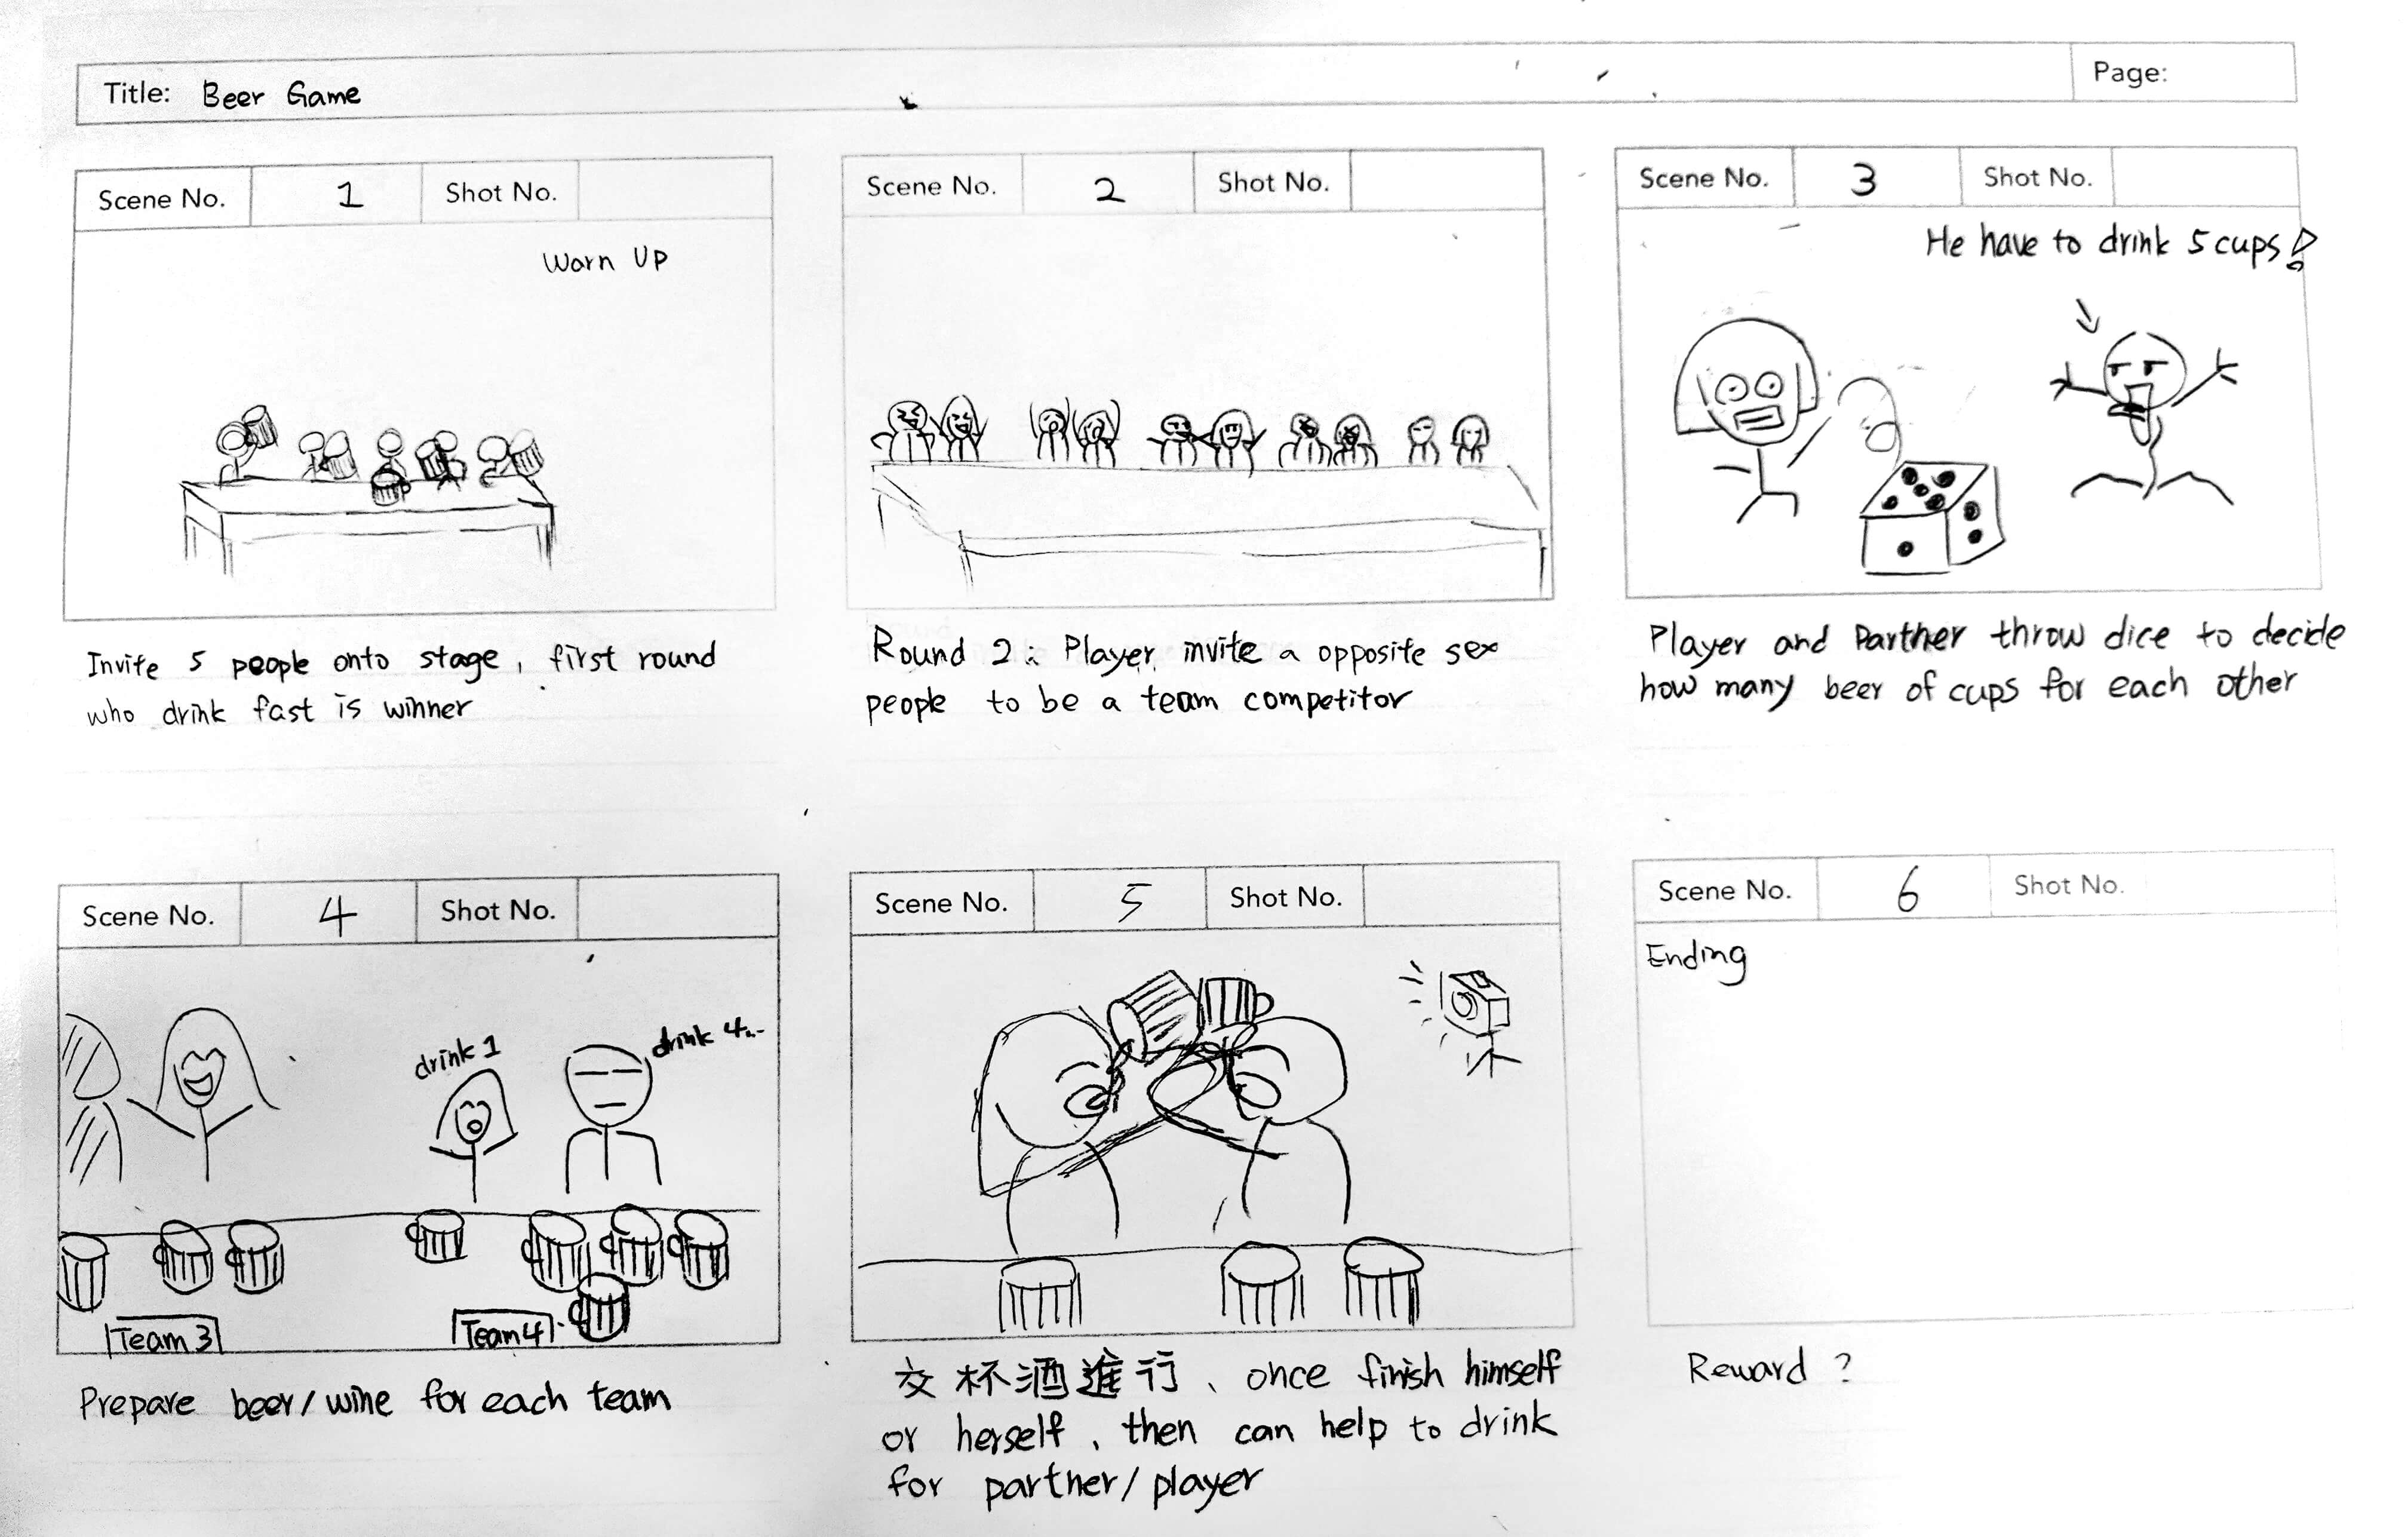 Title: Beer Game
Page:
Scene No. 1 Shot No.
Warn Up
Invite 5 people onto stage, first round
who drink fast is winner
Scene No. 2 Shot No.
Round 2: Player invite a opposite sex
people to be a team competitor
Scene No. 3 Shot No.
He have to drink 5 cups!
Player and Partner throw dice to decide
how many beer of cups for each other
Scene No. 4 Shot No.
drink 1
drink 4...
Team 3
Team 4
Prepare beer/wine for each team
Scene No. 5 Shot No.
交杯酒進行、once finish himself
or herself、then can help to drink
for partner/player
Scene No. 6 Shot No.
Ending
Reward?